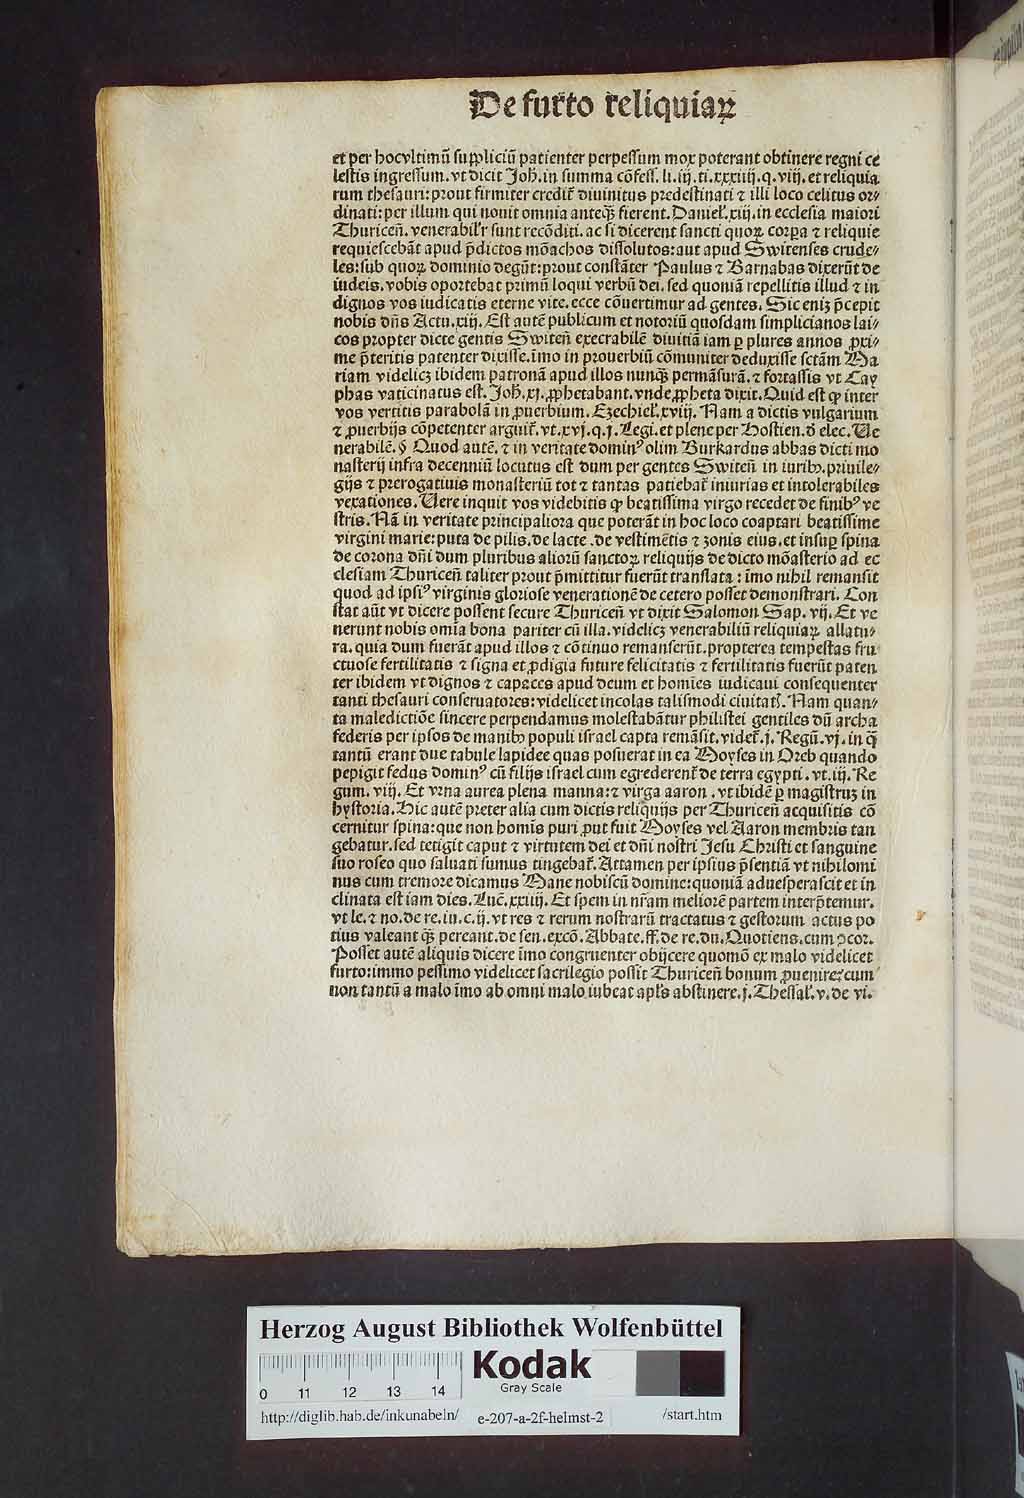 De furto reliquiaꝝ
et per hocvltimū supꝓliciū patienter perpessum mox poterant obtinere regni ce
lestis ingressum. vt dicit Joh̄. in summa cōfess. li. iij. ti. xxxiiij. q. viij. et reliquia
rum thesauri: prout firmiter credit᷑ diuinitus predestinati ⁊ illi loco celitus or⸗
dinati: per illum qui nouit omnia anteq̄ꝫ fierent. Daniel̓. xiij. in ecclesia maiori
Thuriceñ. venerabil̓r sunt recōditi. ac si dicerent sancti quoꝝ corꝑa ⁊ reliquie
requiescebāt apud p̄dictos mōachos dissolutos: aut apud Switenses crude⸗
les: sub quoꝝ dominio degūt: prout constāter Paulus ⁊ Barnabas dixerūt de
iudeis. vobis oportebat primū loqui verbū dei. sed quoniā repellitis illud ⁊ in
dignos vos iudicatis eterne vite. ecce cōuertimur ad gentes. Sic eniꝫ p̄cepit
nobis dn̄s Actu. xiij. Est autē publicum et notoriū quosdam simplicianos lai⸗
cos propter dicte gentis Switeñ execrabilē diuitiā iam ꝑ plures annos ꝓxi⸗
me p̄teritis patenter dixisse. īmo in prouerbiū cōmuniter deduxisse sctām Ma
riam videlicꝫ ibidem patronā apud illos nunq̄ꝫ permāsurā. ⁊ fortassis vt Cay
phas vaticinatus est. Joh̄. xj. ꝓphetabant. vnde ꝓpheta dixit. Quid est ꝙ inter
vos vertitis parabolā in ꝓuerbium. Ezechiel̓. xviij. Nam a dictis vulgarium
⁊ ꝓuerbijs cōpetenter arguit᷑. vt. xvj. q. j. Legi. et plene per Hostien. ð elec. Ue
nerabilē. § Quod autē. ⁊ in veritate dominꝰ olim Burkardus abbas dicti mo
nasterij infra decenniū locutus est dum per gentes Switeñ in iuribꝫ. priuile⸗
gijs ⁊ prerogatiuis monasteriū tot ⁊ tantas patiebat᷑ iniurias et intolerabiles
vexationes. Uere inquit vos videbitis ꝙ beatissima virgo recedet de finibꝰ ve
stris. Nā in veritate principaliora que poterāt in hoc loco coaptari beatissime
virgini marie: puta de pilis. de lacte. de vestimētis ⁊ zonis eius. et insuꝑ spina
de corona dn̄i dum pluribus alioruū sanctoꝝ reliquijs de dicto mōasterio ad ec
clesiam Thuriceñ taliter prout p̄mittitur fuerūt translata: īmo nihil remansit
quod ad ipsiꝰ virginis gloriose venerationē de cetero posset demonstrari. Con
stat aūt vt dicere possent secure Thuriceñ vt dixit Salomon Sap. vij. Et ve
nerunt nobis om̄ia bona pariter cū illa. videlicꝫ venerabiliū reliquiaꝝ allatu⸗
ra. quia dum fuerāt apud illos ⁊ cōtinuo remanserūt. propterea tempestas fru
ctuose fertilitatis ⁊ signa et ꝓdigia future felicitatis ⁊ fertilitatis fuerūt paten
ter ibidem vt dignos ⁊ capaces apud deum et homīes iudicaui consequenter
tanti thesauri conseruatores: videlicet incolas talismodi ciuitatꝭ. Nam quan⸗
ta maledictiōe sincere perpendamus molestabātur philistei gentiles dū archa
federis per ipsos de manibꝫ populi israel capta remāsit. videt᷑. j. Regū. vj. in q̄
tantū erant due tabule lapidee quas posuerat in ea Moyses in Oreb quando
pepigit fedus dominꝰ cū filijs israel cum egrederent᷑ de terra egypti. vt. iij. Re
gum. viij. Et vrna aurea plena manna: ⁊ virga aaron. vt ibidē ꝑ magistruꝫ in
hystoria. Hic autē preter alia cum dictis reliquijs per Thuriceñ acquisitis cō
cernitur spina: que non homīs puri ꝓut fuit Moyses vel Aaron membris tan
gebatur. sed tetigit caput ⁊ virtutem dei et dn̄i nostri Jesu Christi et sanguine
suo roseo quo saluati sumus tingebat᷑. Attamen per ipsius p̄sentiā vt nihilomi
nus cum tremore dicamus Mane nobiscū domine: quoniā aduesperascit et in
clinata est iam dies. Luc̄. xxiiij. Et spem in nr̄am meliorē partem interp̄temur.
vt le. ⁊ no. de re. iu. c. ij. vt res ⁊ rerum nostrarū tractatus ⁊ gestorum actus po
tius valeant q̄ꝫ pereant. de sen. excō. Abbate. ff. de re. du. Quotiens. cum ꝯcor.
Posset autē aliquis dicere īmo congruenter obijcere quomō ex malo videlicet
furto: immo pessimo videlicet sacrilegio possit Thuriceñ bonum ꝓuenire: cum
non tantū a malo īmo ab omni malo iubeat apl̓s abstinere. j. Thessal̓. v. de vi.
Herzog August Bibliothek Wolfenbüttel
Kodak
Gray Scale
0 11 12 13 14
http://diglib.hab.de/inkunabeln/ e-207-a-2f-helmst-2 /start.htm